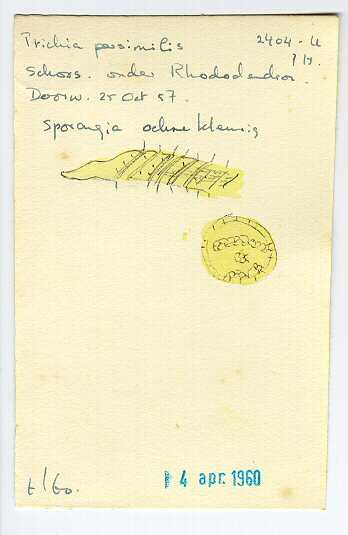 Trichia persimilis 2404-U
Schors. onder Rhododendron.
Doorw. 25 Oct 57.
Sporangia ochrekleurig
14 apr. 1960